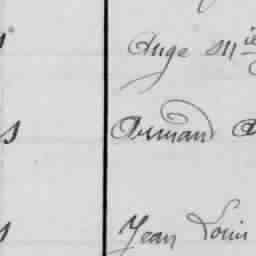 Ange Mie
s Armand
Jean Louis